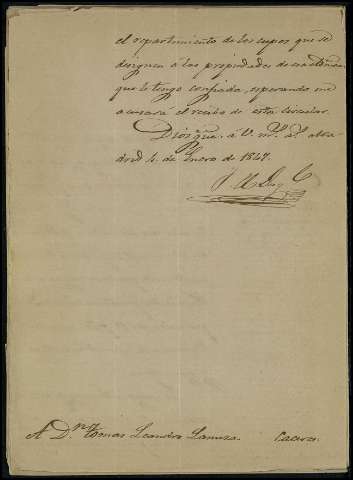 el repartimiento de los cupos que se
designen á las propiedades de
que le tengo confiada, esperando me
acusará el recibo de esta circular.
Dios gue. á V. ms. as. Ma-
drid 4. de Enero de 1847.
A Dn. Tomas Leandro Lanuza. Caceres.